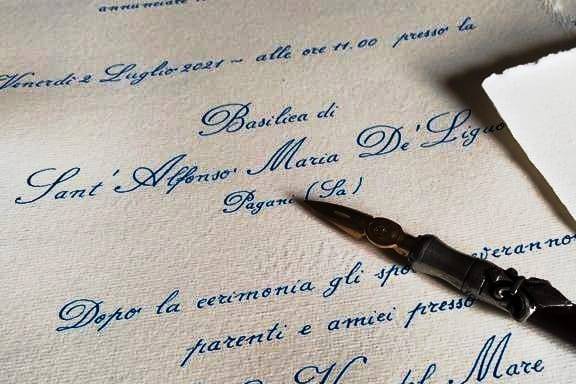 annunciare
Venerdì 2 Luglio 2021 ~ alle ore 11.00 presso la
Basilica di
Sant'Alfonso Maria De' Liguo
Pagani (Sa)
Dopo la cerimonia gli spo everanno
parenti e amici presso
Mare